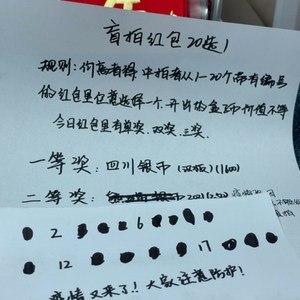 盲拍红包20选1
规则: 你需要待中拍者从1-20个带有编号
的红包里任意选择一个.开出的金币价值不等
今日红包里有单奖.双奖.三奖.
一等奖: 四川银币(双版)(1600)
二等奖: 2021
2 6
12 17
疫情又来了! 大家注意防护!